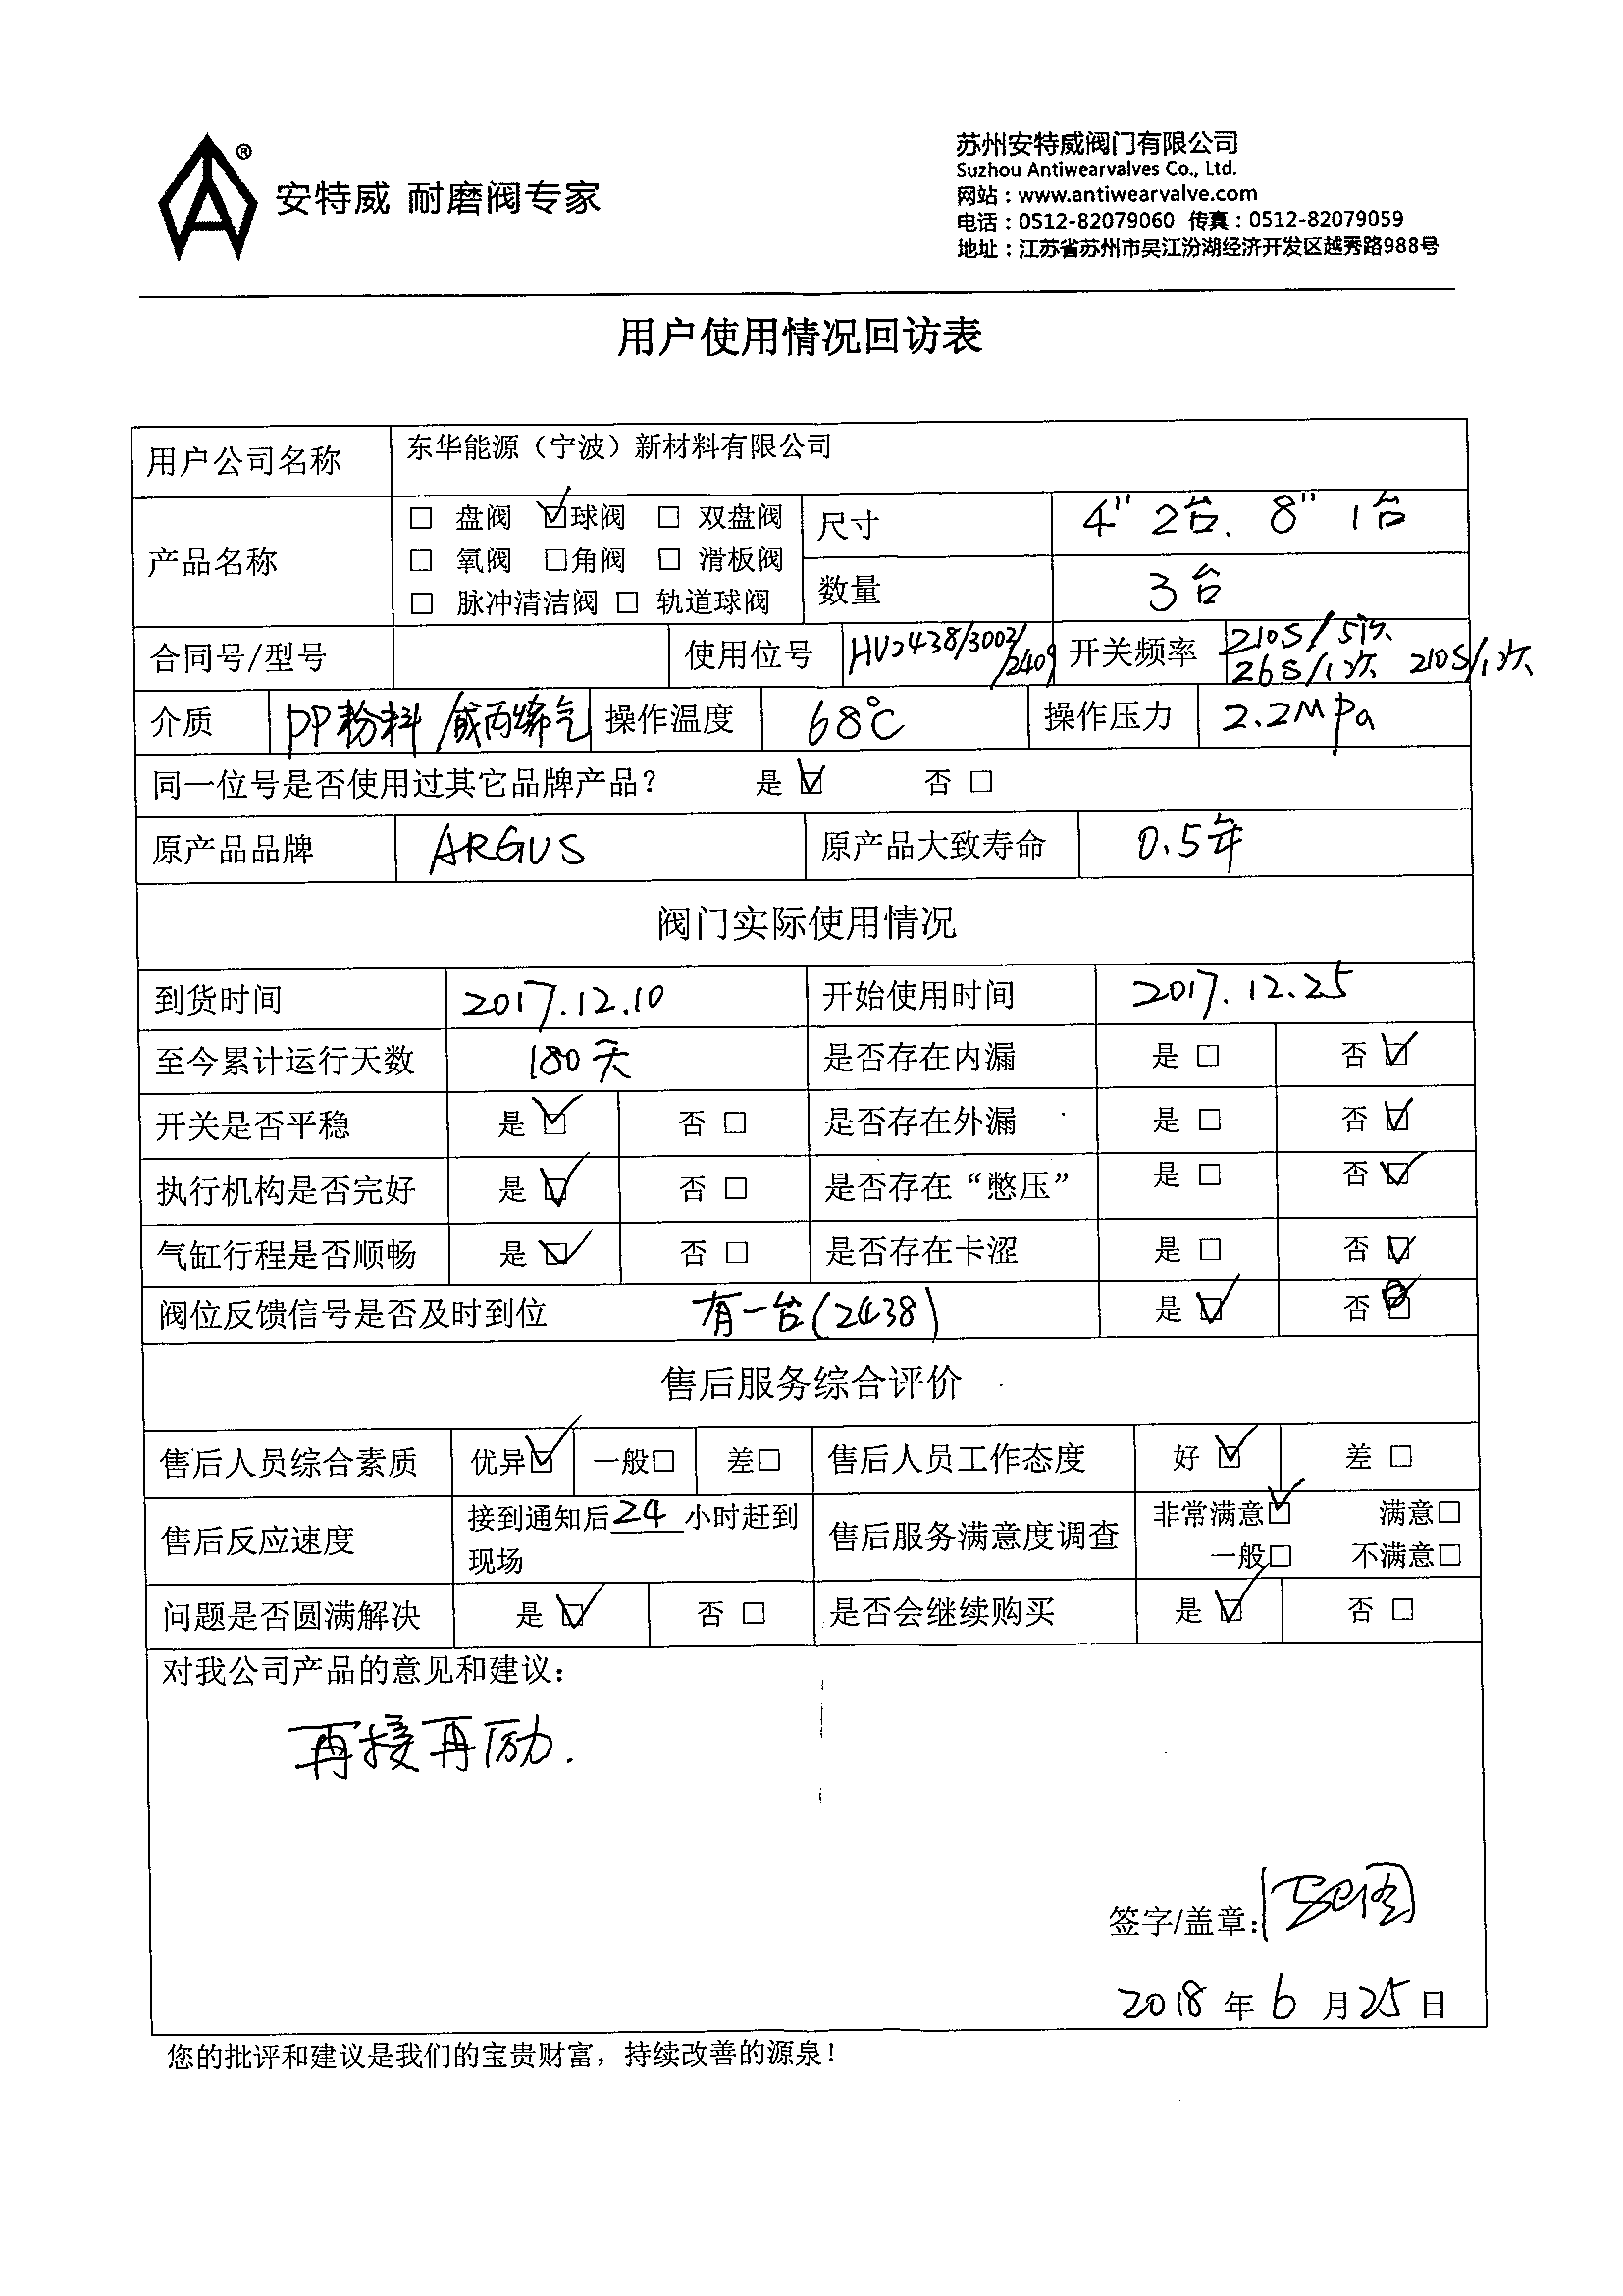 ®
安特威 耐磨阀专家
苏州安特威阀门有限公司
Suzhou Antiwearvalves Co., Ltd.
网站：www.antiwearvalve.com
电话：0512-82079060 传真：0512-82079059
地址：江苏省苏州市吴江汾湖经济开发区越秀路988号
用户使用情况回访表
用户公司名称 东华能源（宁波）新材料有限公司
产品名称 □ 盘阀 ☑球阀 □ 双盘阀
□ 氧阀 □角阀 □ 滑板阀
□ 脉冲清洁阀 □ 轨道球阀
尺寸 4" 2台. 8" 1台
数量 3台
合同号/型号 使用位号 HV2438/3003/2409 开关频率 210S/5次
26S/1次 210S/1次
介质 PP粉料/ 丙烯气 操作温度 68℃ 操作压力 2.2MPa
同一位号是否使用过其它品牌产品？ 是 ☑ 否 □
原产品品牌 ARGUS 原产品大致寿命 0.5年
阀门实际使用情况
到货时间 2017.12.10 开始使用时间 2017.12.25
至今累计运行天数 180天 是否存在内漏 是 □ 否 ☑
开关是否平稳 是 ☑ 否 □ 是否存在外漏 是 □ 否 ☑
执行机构是否完好 是 ☑ 否 □ 是否存在“憋压” 是 □ 否 ☑
气缸行程是否顺畅 是 ☑ 否 □ 是否存在卡涩 是 □ 否 ☑
阀位反馈信号是否及时到位 有一台(2438) 是 ☑ 否 ☑
售后服务综合评价
售后人员综合素质 优异☑ 一般□ 差□ 售后人员工作态度 好 ☑ 差 □
售后反应速度 接到通知后24小时赶到
现场
售后服务满意度调查 非常满意☑ 满意□
一般□ 不满意□
问题是否圆满解决 是 ☑ 否 □ 是否会继续购买 是 ☑ 否 □
对我公司产品的意见和建议：
再接再励.
签字/盖章：
2018 年 6 月 25 日
您的批评和建议是我们的宝贵财富，持续改善的源泉！